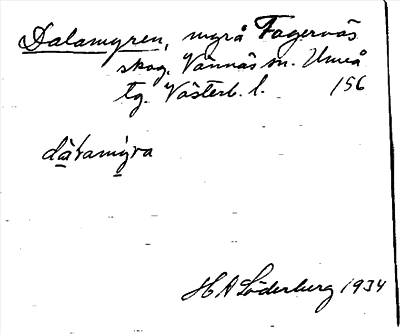 Dalamyren, myrå Fagernäs
skog. Vännäs sn. Umeå
tg. Västerb. l. 156
dalamyra
H A Söderberg 1934